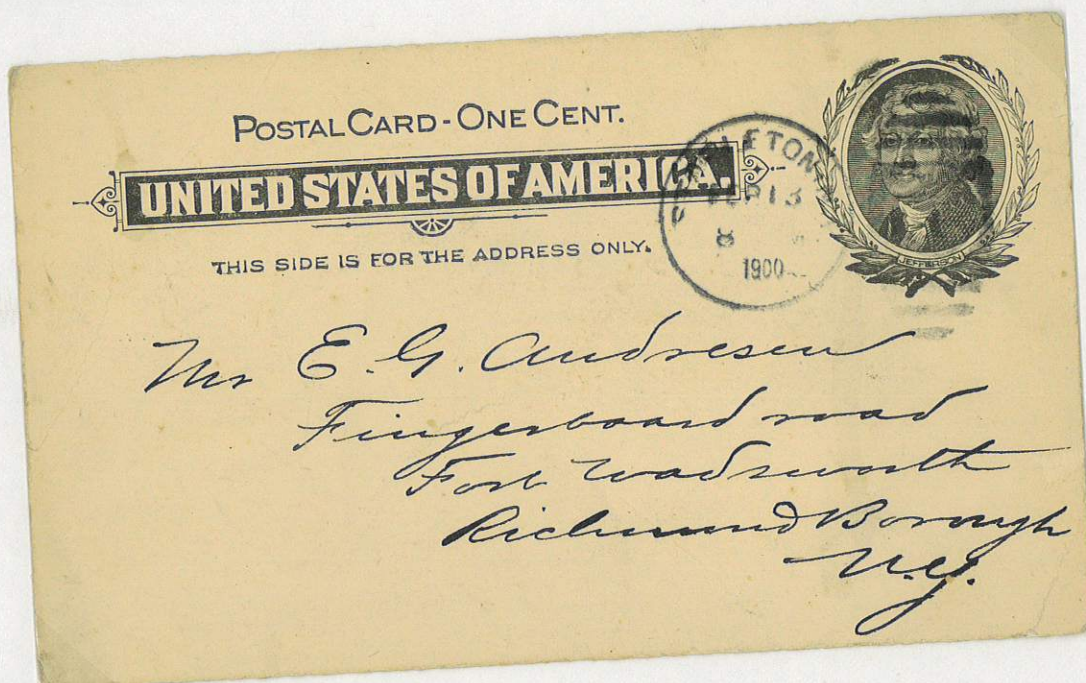 POSTAL CARD - ONE CENT.
UNITED STATES OF AMERICA.
THIS SIDE IS FOR THE ADDRESS ONLY.
13
8
1900
JEFFERSON
Mr E. G. Andresen
Fingerboard road
Fort Wadsworth
Richmond Borough
N.Y.